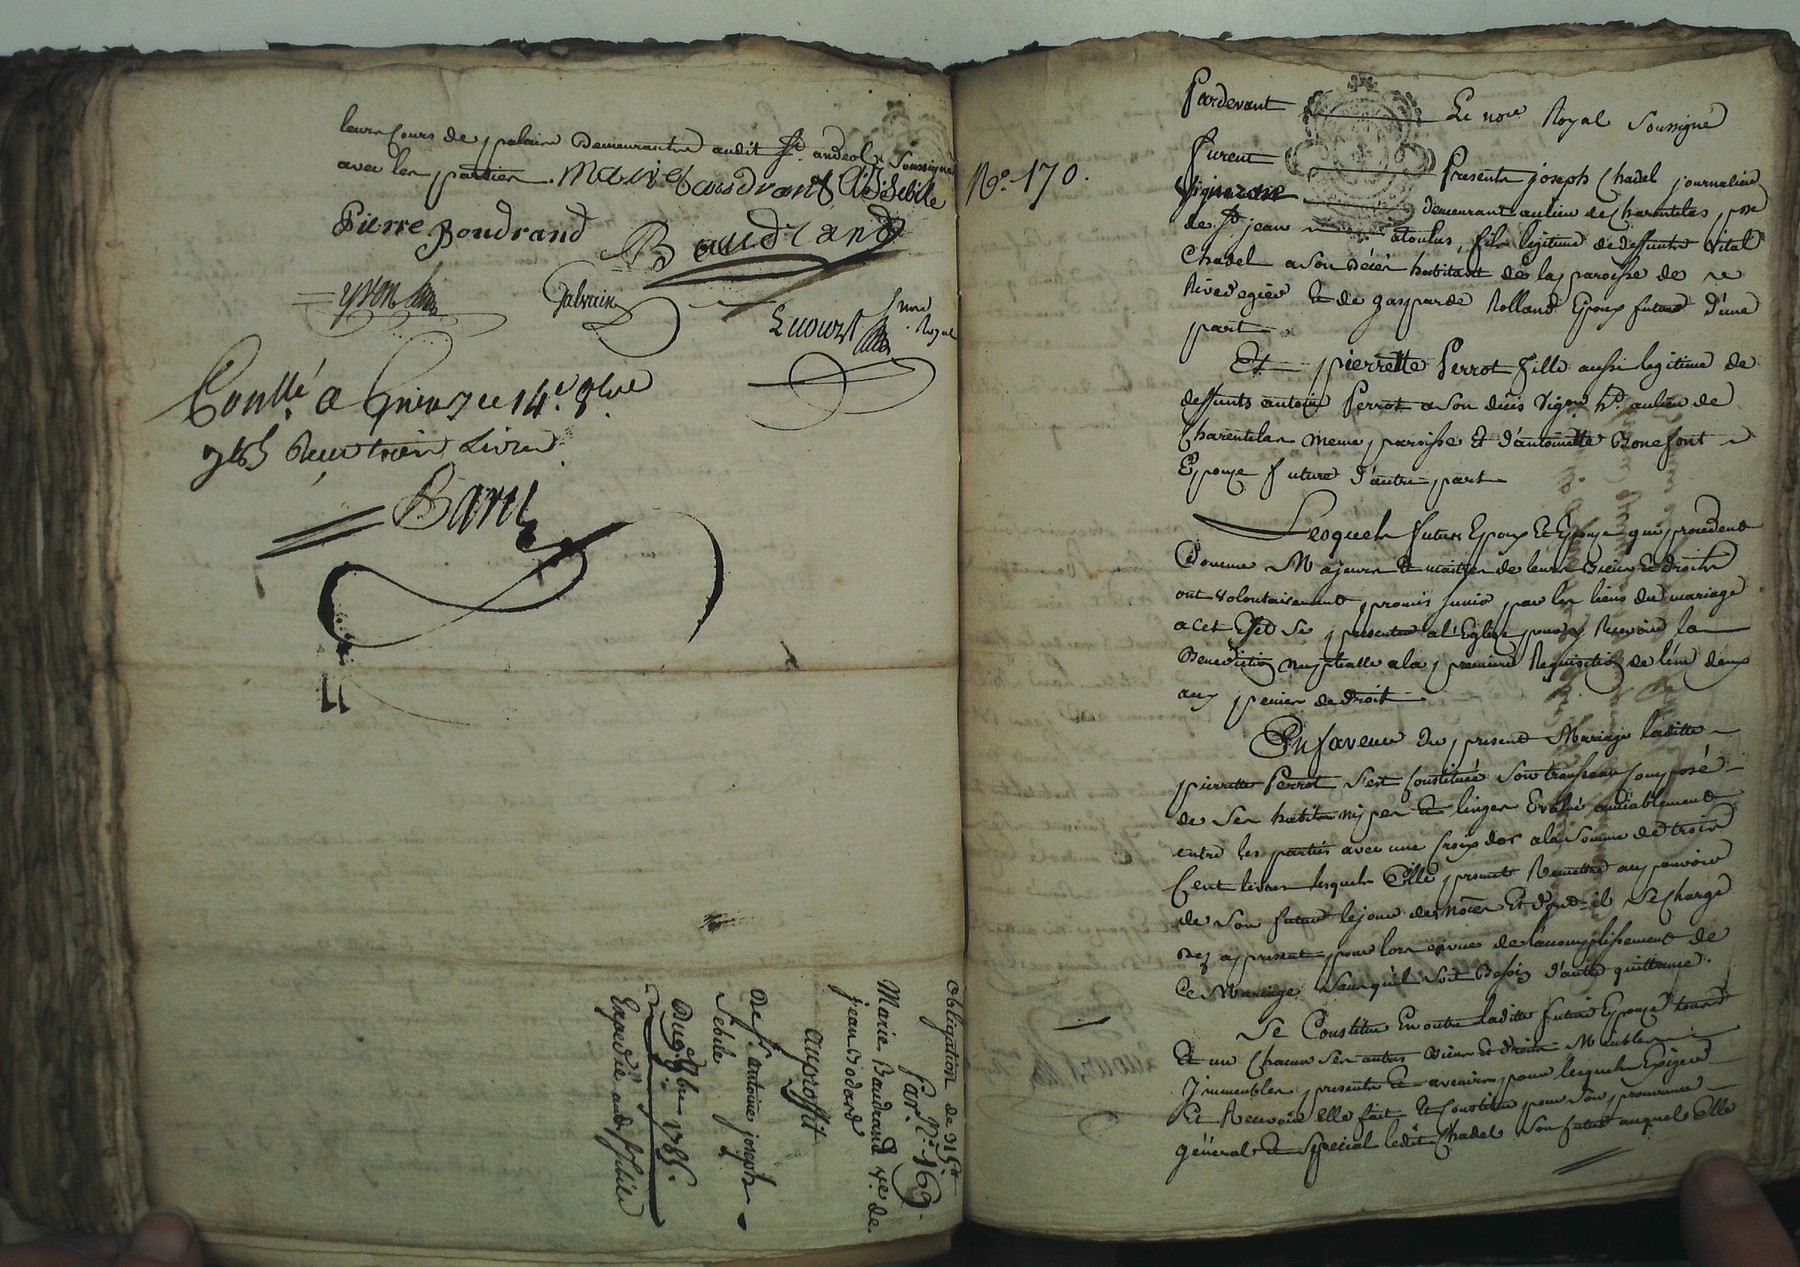 leurs Cours de palais Demeurantes audit St. andeol & Soussignés
avec les parties. Marie baudrant A: J: Sebile
Pierre Boudrand Baudrand
yvon Galvain
Lucourt nore Royal
Conllé a Givors ce 14e. 9bre
785 Reçu trois Livres
Barri
obligation de 315#
Par No. 169.
Marie Baudrand ve. de
jean Bodard
au proffit
de Sr. antoine joseph
Sebile
Du 9e. 9bre 1785.
Expédié aud. Sr. Sebile
No. 170.
Pardevant Le nore Royal Soussigné
furent Presents joseph Chadel journalier
Vigneron demeurant au lieu de Charentelas, psse
de St. jean a toulas, fils legitime de deffunts Vital
Chadel a son décès habitant de la paroisse de
Rivedegier et de gasparde Rolland Epoux futur d'une
part
Et pierrette Perrot fille aussi legitime de
deffunts antoine Perrot a son décès Vigon ht. au lieu de
Charentelas meme paroisse et d'antoinette Bonefont
Epouze future d'autre part
Lesquels futurs Epoux Et Epouze qui procedent
Comme Majeurs et maitres de leurs Biens et droits
ont Volontairement promis s'unir par les liens du mariage
a cet Effet de se presenter a l'Eglise pour y Recevoir la
Benediction nuptialle a la premiere Requisition de l'un deux
aux peines de droit
En faveur du present Mariage laditte
pierrette Perrot s'est Constituée son trousseau composé
de ses habits nipes et linges Evalué amiablement
entre les parties avec une Croix d'or a la somme de trois
Cent livres lesquels Elle promet Remettre au pouvoir
de son futur le jour des noces Et dont il se charge
des a present pour lors en vue de l'accomplissement de
Ce Mariage sans qu'il soit Besoin d'autre quittance.
Se Constitue En outre laditte future Epouze tous
Et un Chacun ses autres Biens et droits Meubles
Immeubles presents et avenirs pour lesquels Exiger
Et Recevoir elle fait et Constitue pour son procureur
général et special ledit Chadel son futur auquel Elle